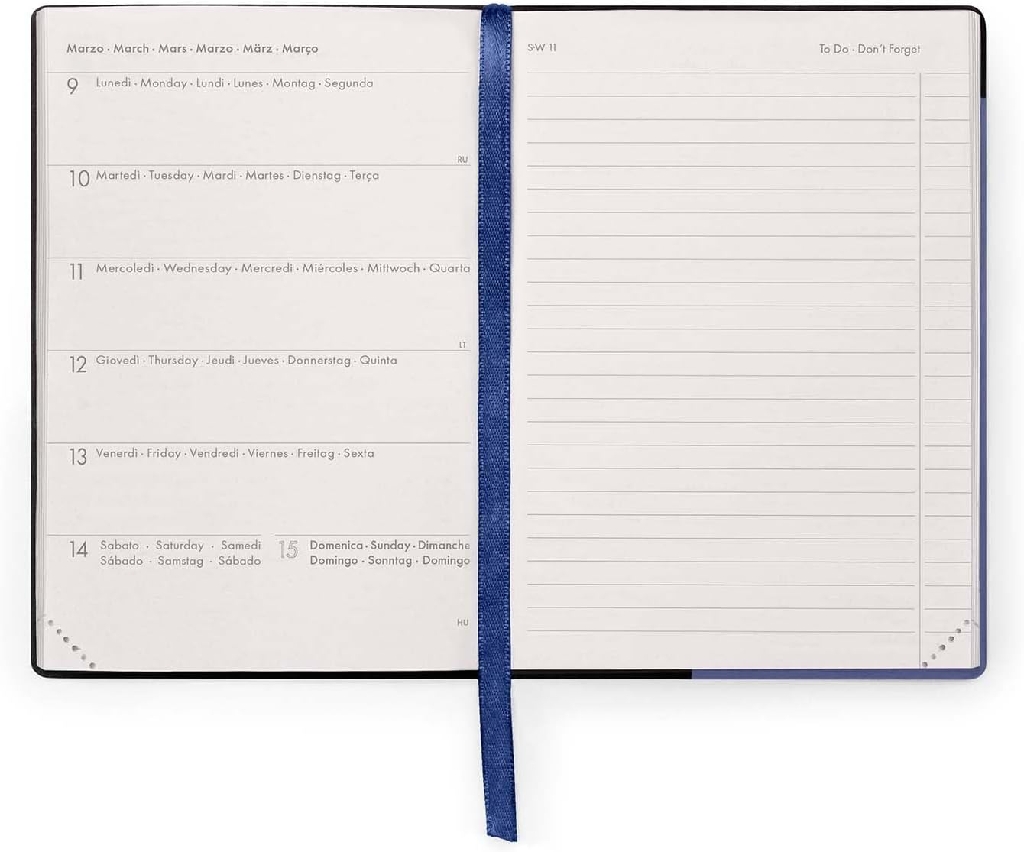 Marzo · March · Mars · Marzo · März · Março
9 Lunedì · Monday · Lundi · Lunes · Montag · Segunda
RU
10 Martedì · Tuesday · Mardi · Martes · Dienstag · Terça
11 Mercoledì · Wednesday · Mercredi · Miércoles · Mittwoch · Quarta
LT
12 Giovedì · Thursday · Jeudi · Jueves · Donnerstag · Quinta
13 Venerdì · Friday · Vendredi · Viernes · Freitag · Sexta
14 Sabato · Saturday · Samedi
Sábado · Samstag · Sábado
15 Domenica · Sunday · Dimanche
Domingo · Sonntag · Domingo
HU
S·W 11
To Do · Don't Forget